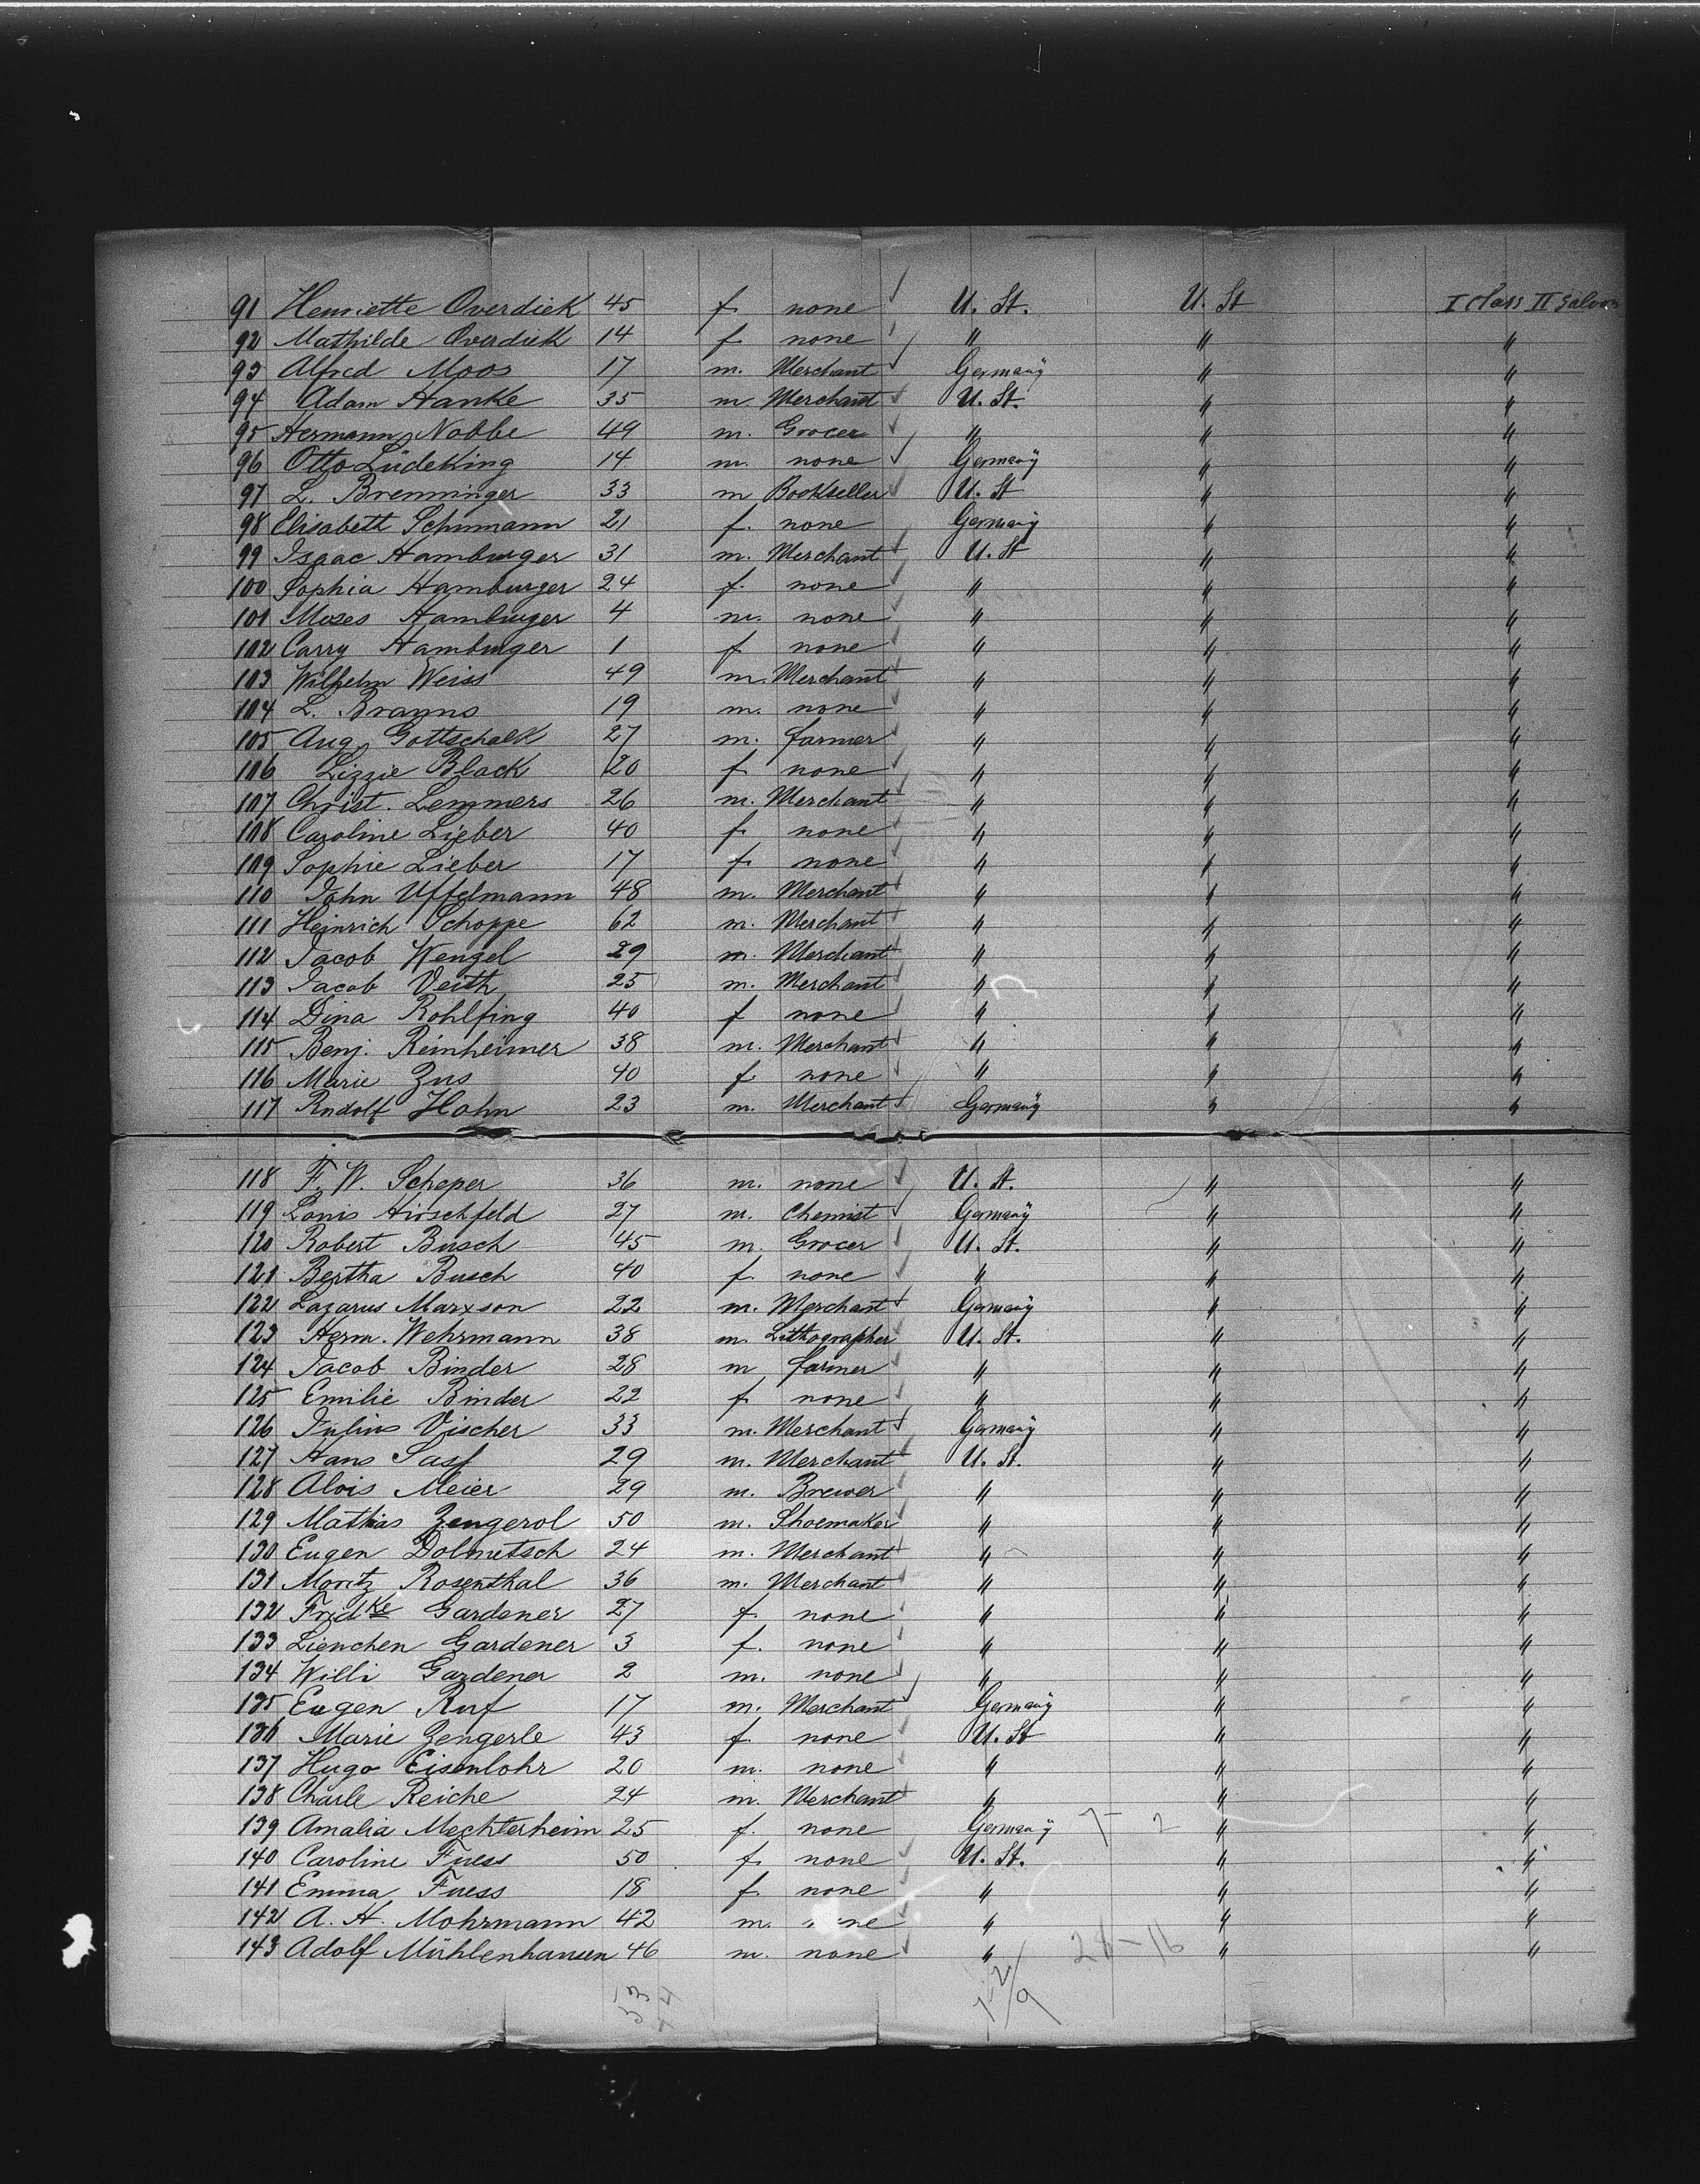 91 Henriette Overdiek 45 f. none U. St. U. St I Class II Saloon
92 Mathilde Overdiek 14 f. none " " "
93 Alfred Moos 17 m. Merchant Germany " "
94 Adam Hanke 35 m. Merchant U. St. " "
95 Hermann Nobbe 49 m. Grocer " " "
96 Otto Lüdeking 14 m. none Germany " "
97 L. Brenninger 33 m Bookseller U. St " "
98 Elisabeth Schumann 21 f. none Germany " "
99 Isaac Hamburger 31 m. Merchant U. St " "
100 Sophia Hamburger 24 f. none " " "
101 Moses Hamburger 4 m. none " " "
102 Carry Hamburger 1 f none " " "
103 Wilhelm Weiss 49 m. Merchant " " "
104 L. Brayns 19 m. none " " "
105 Aug. Gottschalk 27 m. farmer " " "
106 Lizzie Black 20 f. none " " "
107 Christ. Lemmers 26 m. Merchant " " "
108 Caroline Lieber 40 f. none " " "
109 Sophie Lieber 17 f. none " " "
110 John Uffelmann 48 m. Merchant " " "
111 Heinrich Schoppe 62 m. Merchant " " "
112 Jacob Wenzel 29 m. Merchant " " "
113 Jacob Veith 25 m. Merchant " " "
114 Dina Rohlfing 40 f none " " "
115 Benj. Reinheimer 38 m. Merchant " " "
116 Marie Zus 40 f. none " " "
117 Rudolf Hahn 23 m. Merchant Germany " "
118 F. W. Scheper 36 m. none U. St. " "
119 Louis Hirschfeld 27 m. Chemist Germany " "
120 Robert Busch 45 m. Grocer U. St. " "
121 Bertha Busch 40 f. none " " "
122 Lazarus Marxson 22 m. Merchant Germany " "
123 Herm. Wehrmann 38 m. Lithographer U. St. " "
124 Jacob Binder 28 m farmer " " "
125 Emilie Binder 22 f. none " " "
126 Julius Vischer 33 m. Merchant Germany " "
127 Hans Sass 29 m. Merchant U. St. " "
128 Alois Meier 29 m. Brewer " " "
129 Mathias Zengerol 50 m. Shoemaker " " "
130 Eugen Dolmetsch 24 m. Merchant " " "
131 Moritz Rosenthal 36 m. Merchant " " "
132 Fridke Gardener 27 f. none " " "
133 Lienchen Gardener 3 f. none " " "
134 Willi Gardener 2 m. none " " "
135 Eugen Ruf 17 m. Merchant Germany " "
136 Marie Zengerle 43 f. none U. St " "
137 Hugo Eisenlohr 20 m. none " " "
138 Charle Reiche 24 m. Merchant " " "
139 Amalia Mechterheim 25 f. none Germany 7 - 2 " "
140 Caroline Fuess 50 f. none U. St. " "
141 Emma Fuess 18 f. none " " "
142 A. H. Mohrmann 42 m. " " "
143 Adolf Mühlenhausen 46 m. none " " "